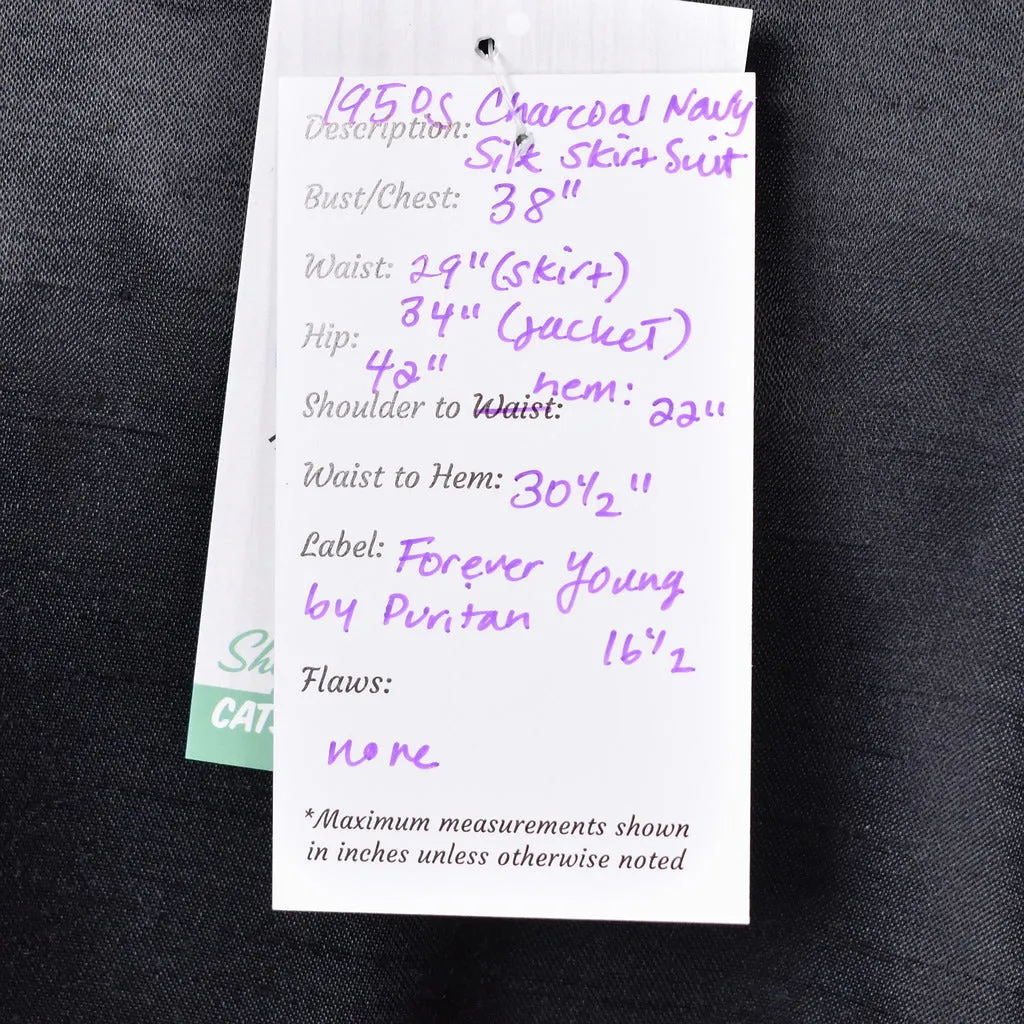 1950s Charcoal Navy
Description: Silk Skirt Suit
Bust/Chest: 38"
Waist: 29" (skirt)
34" (jacket)
Hip: 42"
hem:
Shoulder to Waist: 22"
Waist to Hem: 30 1/2"
Label: Forever Young
by Puritan
16 1/2
Flaws:
none
*Maximum measurements shown
in inches unless otherwise noted
CATS